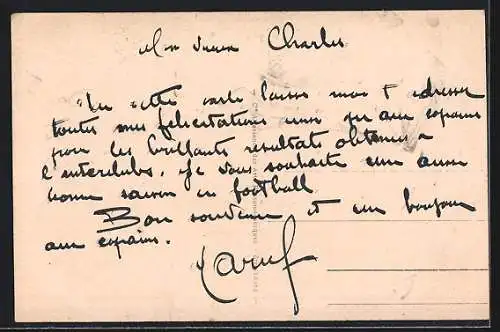 Mon vieux Charles
cette carte laisse moi t'adresser
toutes mes félicitations ainsi qu'aux copains
pour les brillants résultats obtenus à
l'interclubs. Je vous souhaite une aussi
bonne saison en football
Bon souvenir et un bonjour
aux copains.